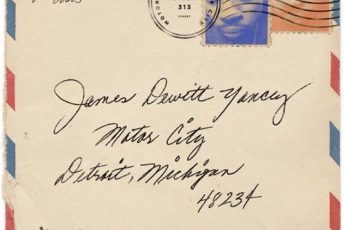 MOTOR CITY
313
James Dewitt Yancey
Motor City
Detroit, Michigan
48234